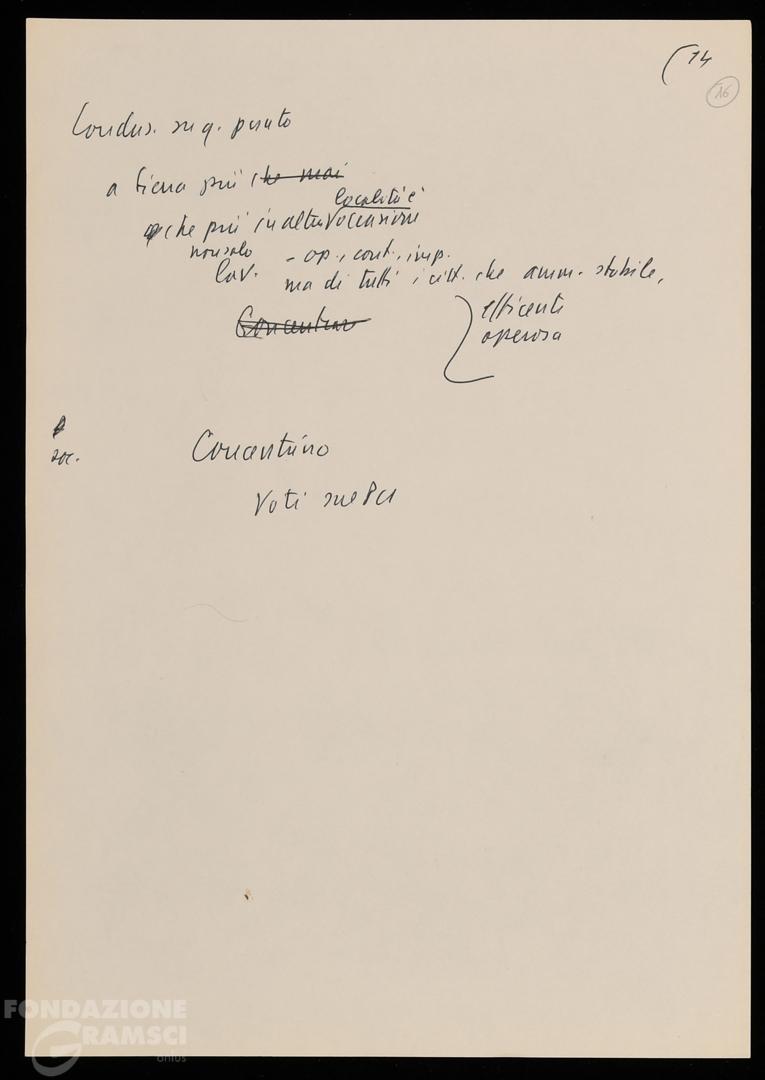 (14
16
Conclus. su q. punto
a Siena più che mai
che più in altre località e occasioni
non solo
lav. - op., cont., imp.
ma di tutti i citt. che amm. stabile,
efficente
operosa
Concentrar
soc.
Concentrino
Voti sul PCI
FONDAZIONE
GRAMSCI
onlus